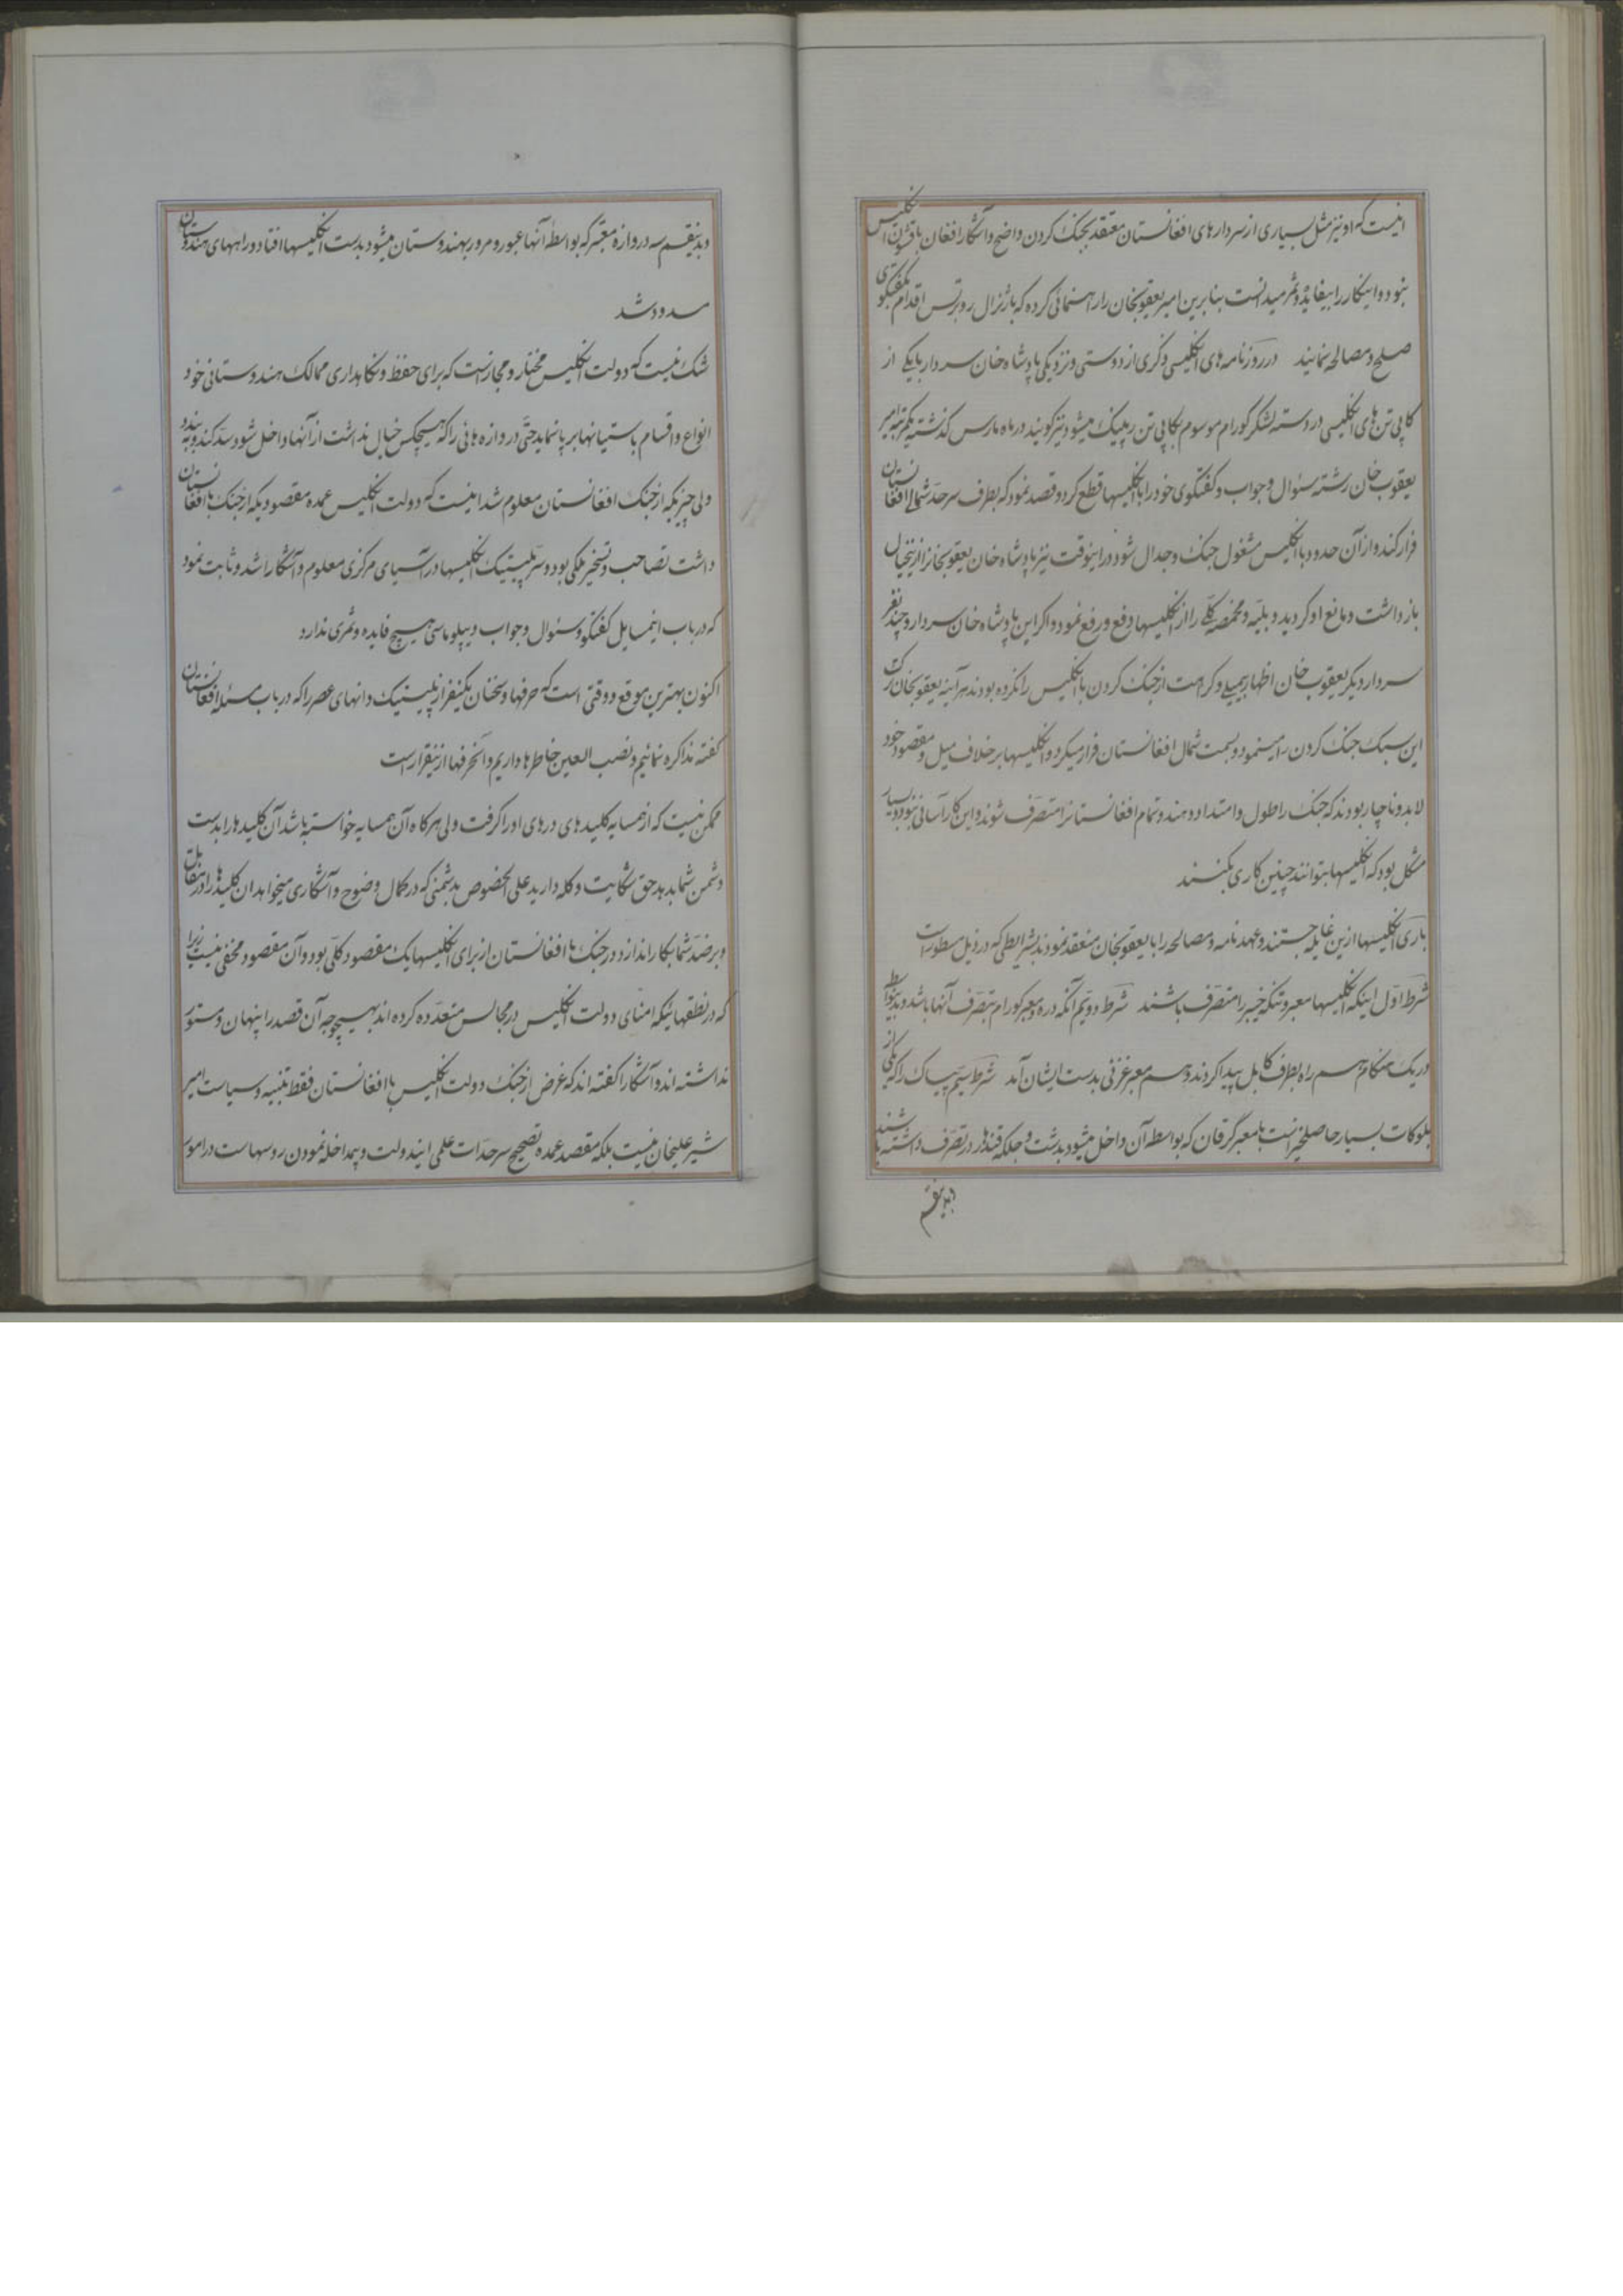 اینست که او نیز مثل بسیاری از سردارهای افغانستان معتقد بجنک کردن واضح و آشکار افغان با قشون انکلیس
نبود و اینکار را بیفایده و ثمر میدانست بنابرین امیر یعقوبخان را راهنمائی کرده که با ژنرال روبرتس اقدام بکفتکوی
صلح و مصالحه نمایند در روزنامه های انکلیسی ذکری از دوستی و نزدیکی پادشاه خان سردار با یکی از
کاپی تن های انکلیسی در دسته لشکر کورام موسوم بکاپی تن ریپیک میشود نیز کویند در ماه مارس کذشته یکمرتبه امیر
یعقوب خان رشته سئوال و جواب و کفتکوی خود را با انکلیسها قطع کرد و قصد نمود که بطرف سرحد شمالی افغانستان
فرار کند و از آن حدود با انکلیس مشغول جنک و جدال شود در اینوقت نیز پادشاه خان یعقوبخانرا ازینخیال
باز داشت و مانع او کردید و بلیه و مخمصه کلی را از انکلیسها دفع و رفع نمود و اکر این پادشاه خان سردار و چند نفر
سردار دیکر یعقوب خان اظهار بیمیلی و کراهت از جنک کردن با انکلیس را نکرده بودند هر آینه یعقوبخان ترک
این سبک جنک کردن را مینمود و بسمت شمال افغانستان فرار میکرد و انکلیسها بر خلاف میل و مقصود خود
لابد و ناچار بودند که جنک را طول و امتداد دهند و تمام افغانستانرا متصرف شوند و این کار آسانی نبود و بسیار
مشکل بود که انکلیسها بتوانند چنین کاری بکنند
باری انکلیسها ازین غایله جستند و عهدنامه و مصالحه را با یعقوبخان منعقد نمودند بشرایطی که در ذیل مسطور است
شرط اول اینکه انکلیسها معبر و تنکه خیبر را متصرف باشند شرط دویم آنکه دره و معبر کورام بتصرف آنها باشد و بدینواسطه
در یک هنکام هم راه بطرف کابل پیدا کردند و هم معبر غزنی بدست ایشان آمد شرط سیم پیساک را که یکی از
بلوکات بسیار حاصلخیز است با معبر کرقان که بواسطه آن داخل میشود بدشت و جلکه قندهار در تصرف داشته باشند
بدینقسم
و بدینقسم سه دروازه معتبر که بواسطه آنها عبور و مرور بهندوستان میشود بدست انکلیسها افتاد و راههای هندوستان
مسدود شد
شک نیست که دولت انکلیس مختار و مجاز است که برای حفظ و نکاهداری ممالک هندوستانی خود
انواع و اقسام باستیانها بر پا نماید حتی دروازه هائی را که هیچکس خیال نداشت از آنها داخل شود سد کند و به بندد
ولی چیزیکه از جنک افغانستان معلوم شد اینست که دولت انکلیس عمده مقصودیکه از جنک با افغانستان
داشت تصاحب و تسخیر ملکی بود و سر پلیتیک انکلیسها در آسیای مرکزی معلوم و آشکارا شد و ثابت نمود
که در باب اینمسایل کفتکو و سئوال و جواب دیپلوماسی هیچ فایده و ثمری ندارد
اکنون بهترین موقع و وقتی است که حرفها و سخنان یکینفر از پلیتیک دانهای عصر را که در باب مسئله افغانستان
کفته مذاکره نمائیم و نصب العین خاطرها داریم و آنحرفها ازینقرار است
ممکن نیست که از همسایه کلیدهای درهای او را کرفت ولی هرکاه آن همسایه خواسته باشد آن کلیدها را بدست
دشمن شما بدهد حق شکایت و کله دارید علی الخصوص بدشمنی که در کمال وضوح و آشکاری میخواهد ان کلیدها را در
و بر ضد شما بکار اندازد در جنک با افغانستان از برای انکلیسها یک مقصود کلی بود و آن مقصود مخفی نیست زیرا
که در نطقهائیکه امنای دولت انکلیس در مجالس متعدده کرده اند بهیچوجه آن قصد را پنهان و مستور
نداشته اند و آشکارا کفته اند که غرض از جنک دولت انکلیس با افغانستان فقط تنبیه و سیاست امیر
شیر علیخان نیست بلکه مقصد عمده تصحیح سرحدات علمی ایندولت و مداخله نمودن روسهاست در امور